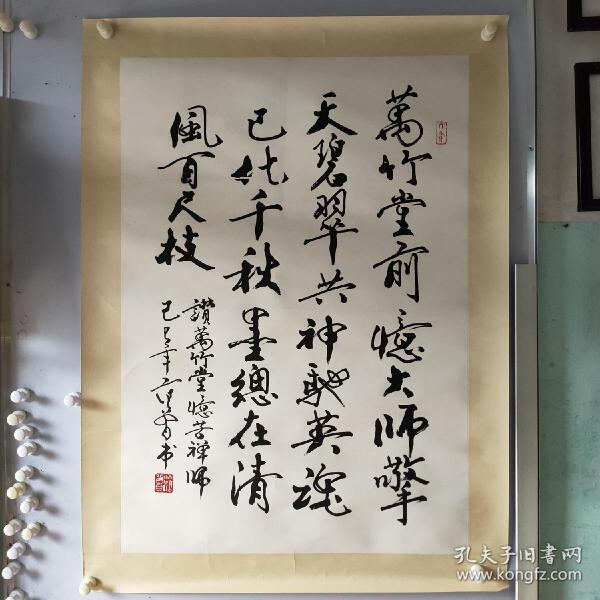 萬竹堂前憶大师擎
天碧翠共神馳英魂
已化千秋墨總在清
風百尺枝
讚萬竹堂憶苦禅师
己巳年范曾书
孔夫子旧書网
www.kongfz.com